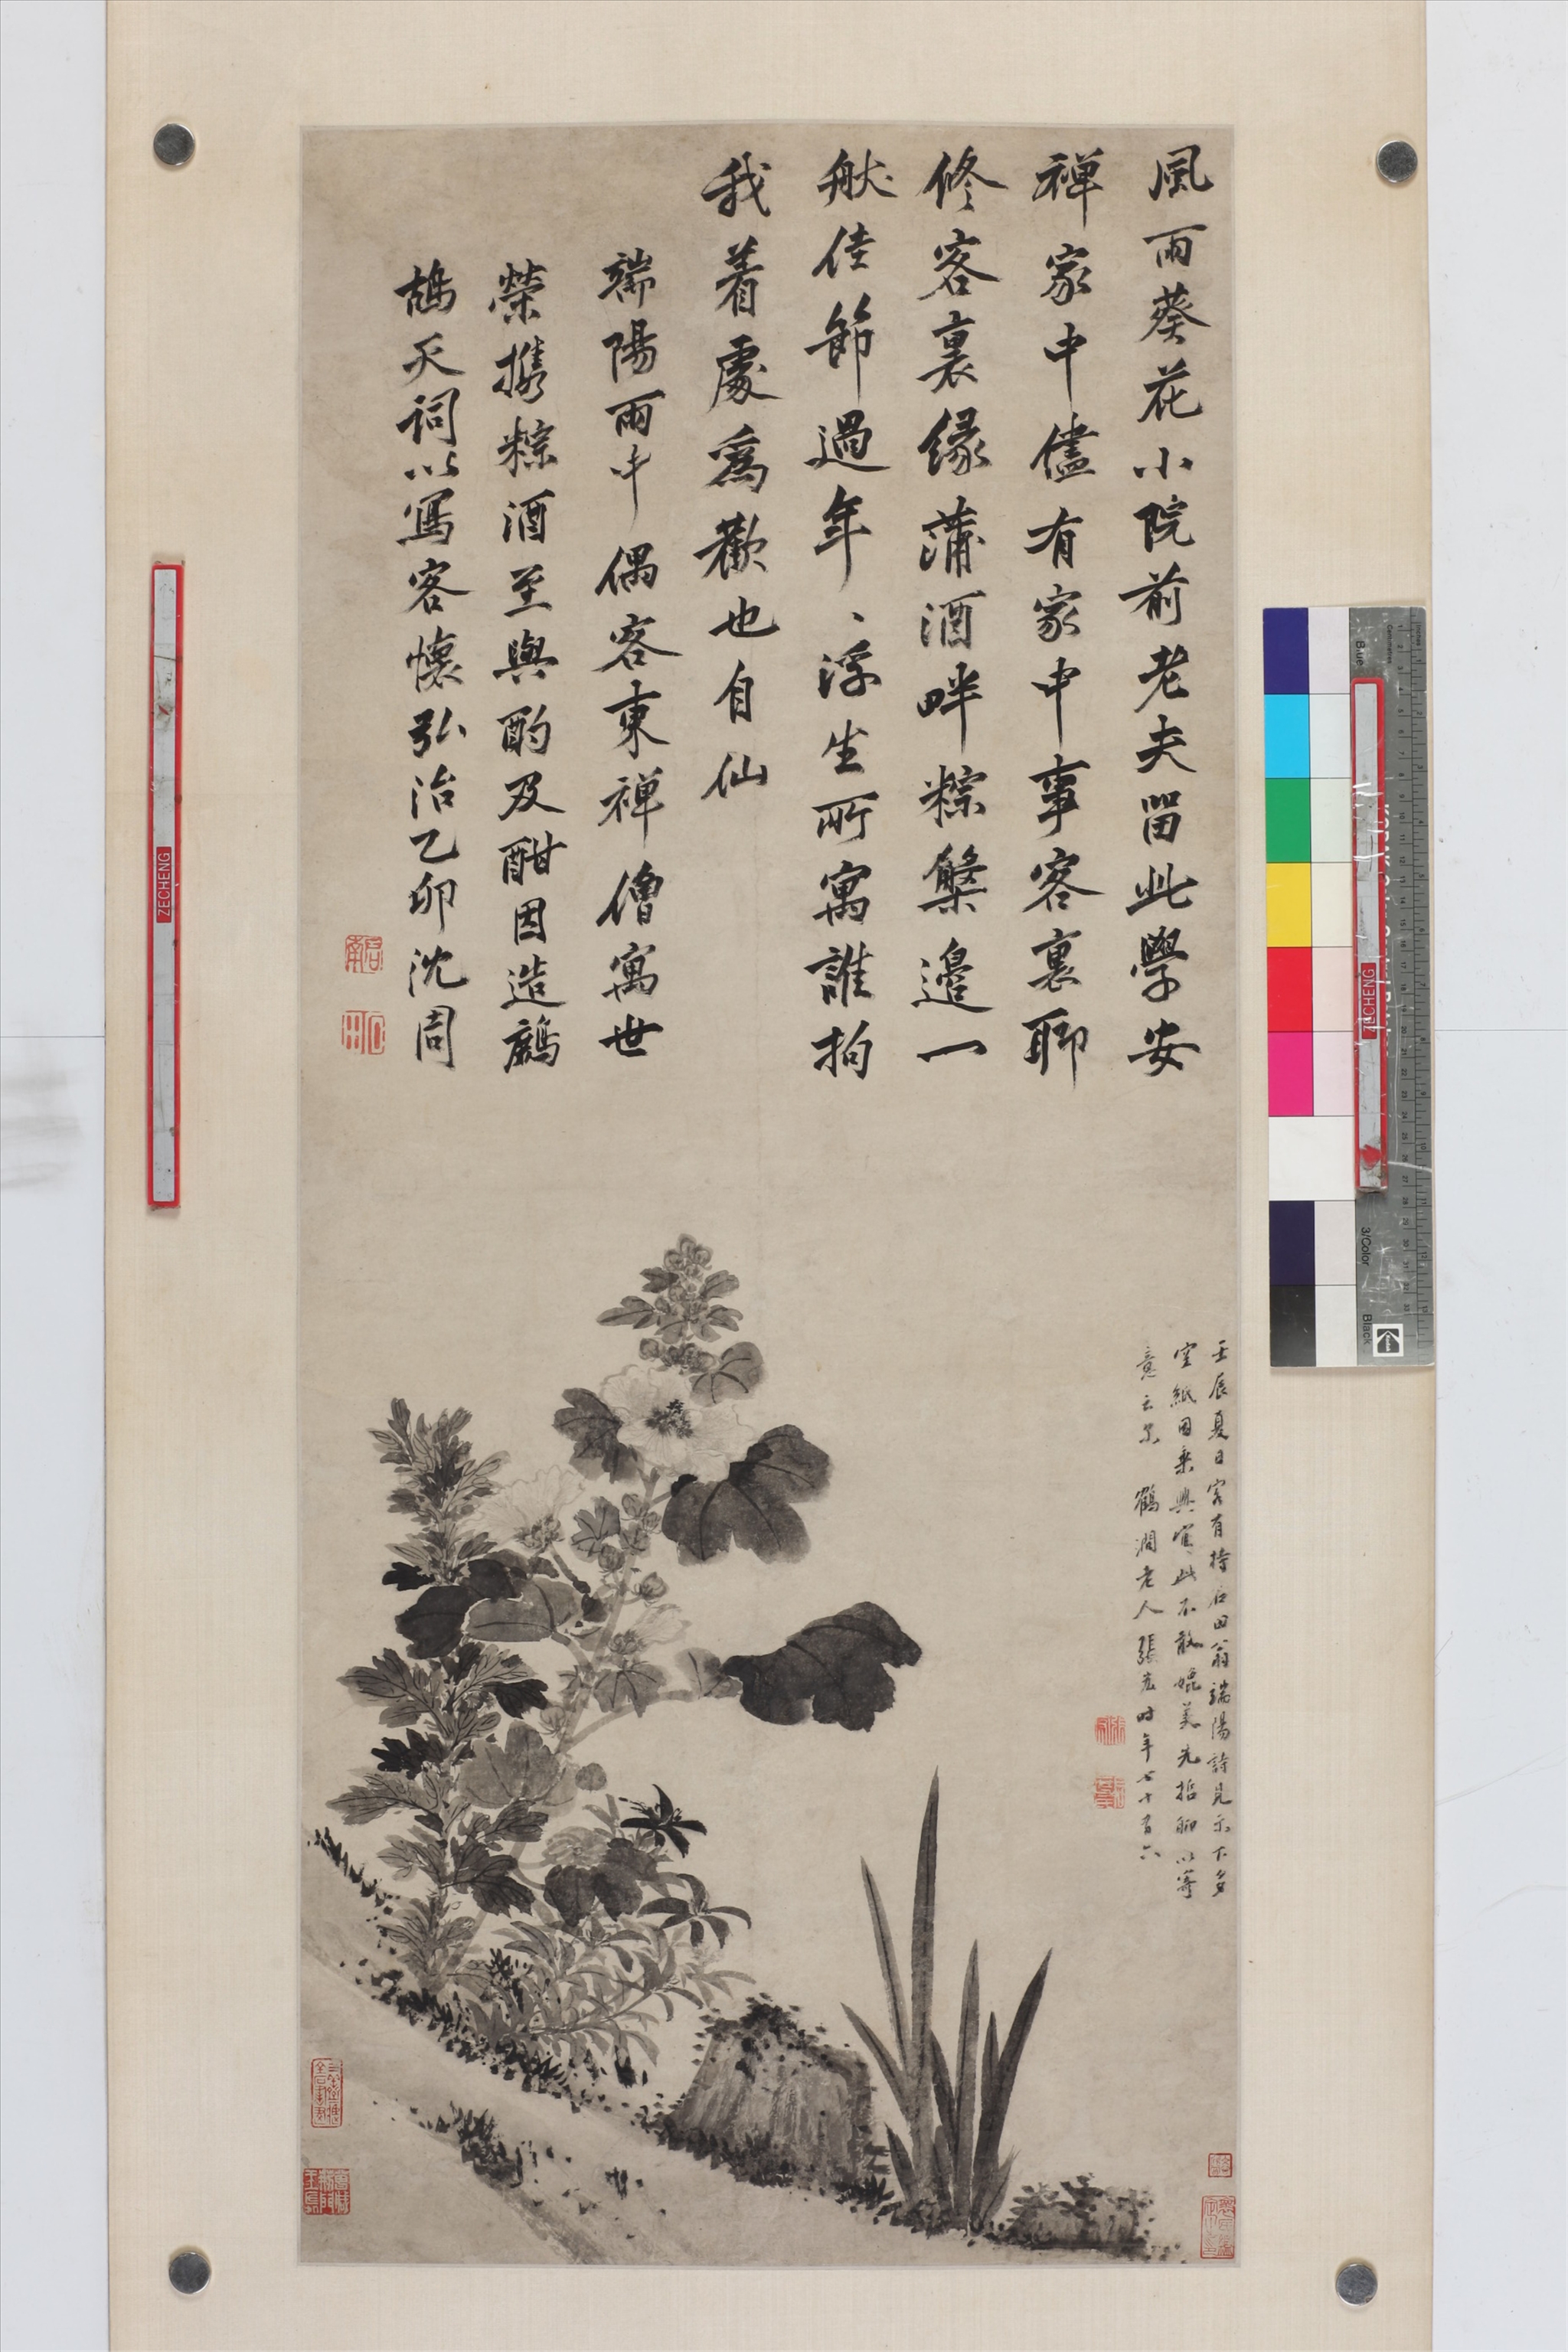 風雨葵花小院前老夫留此學安
禪家中儘有家中事客裏聊
修客裏緣蒲酒畔粽槃邊一
般佳節過年、浮生所寓誰拘
我着處為歡也自仙
端陽雨中偶客東禪僧寓世
榮携粽酒至與酌及酣因造鷓
鴣天詞以寫客懷弘治乙卯沈周
壬辰夏日客有持石田翁端陽詩見示下多
空紙因乘興寫此不敢媲美先哲聊以寄
意云尔 鶴澗老人張宏时年七十有六
ZECHENG
ZECHENG
Blue
Centimetres
3/Color
Black